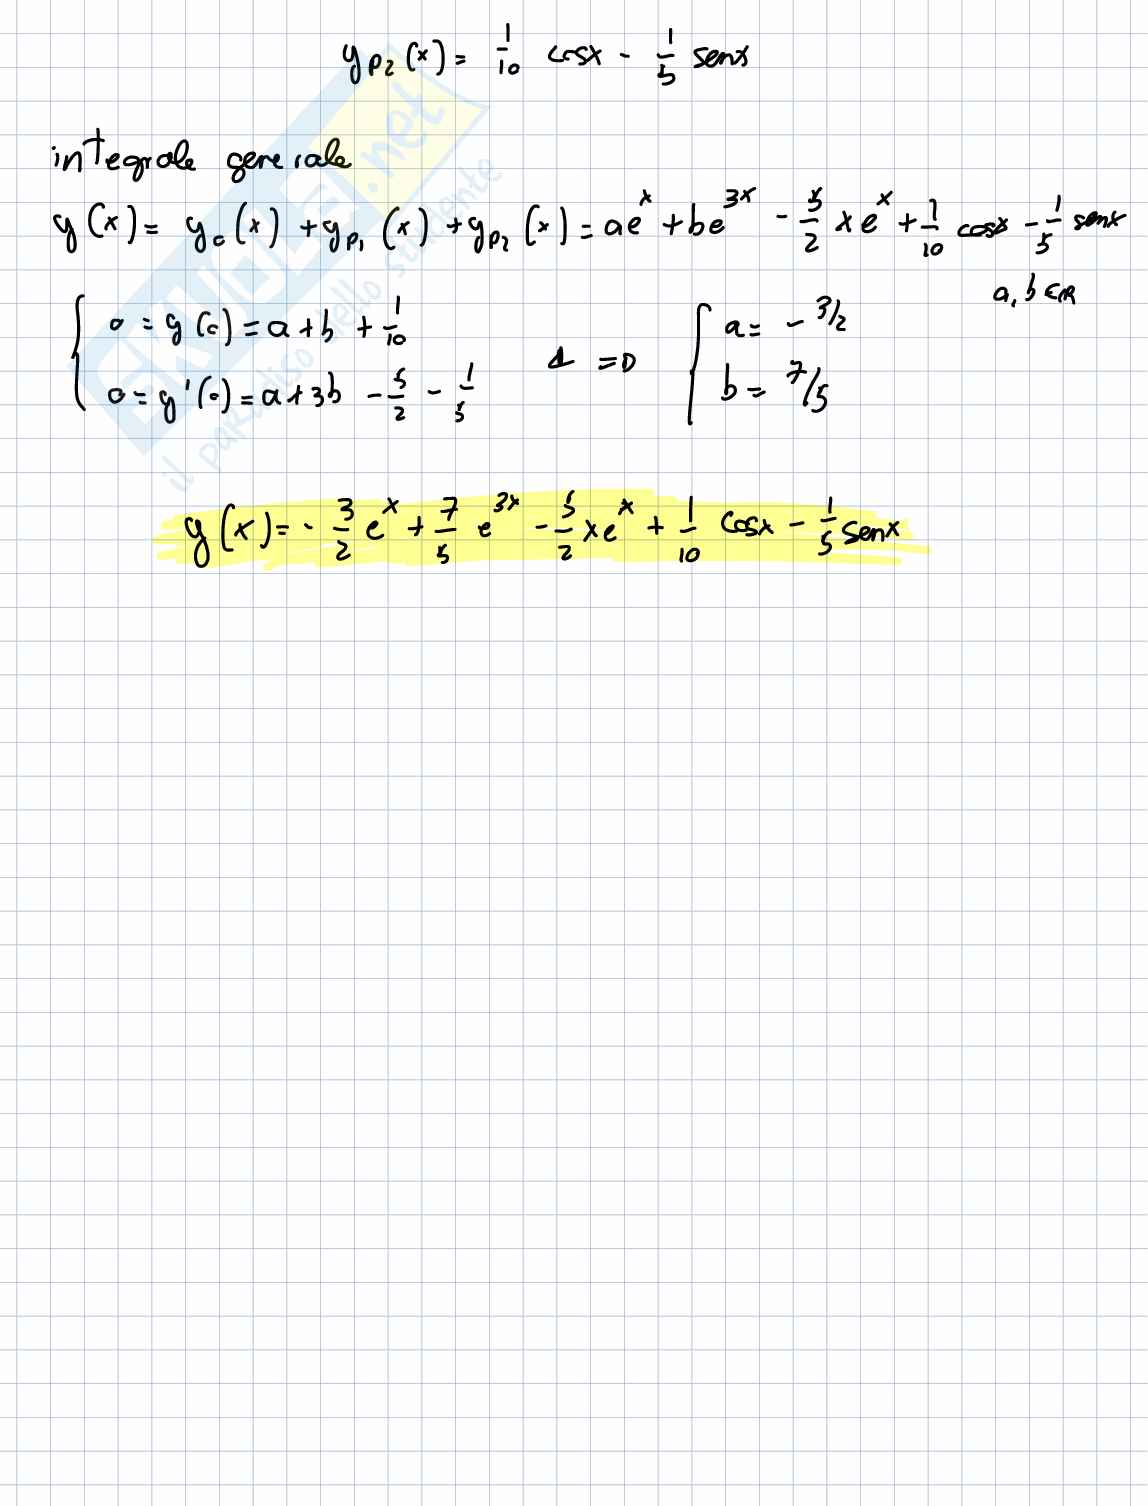 yp₂(x) = 1/10 cosx - 1/5 senx
integrale generale
y(x) = y₀(x) + yp₁(x) + yp₂(x) = ae^x + be^3x - 5/2 xe^x + 1/10 cosx - 1/5 senx
a, b ∈ ℝ
{ 0 = y(0) = a + b + 1/10
0 = y'(0) = a + 3b - 5/2 - 1/5
⇐⇒ { a = - 3/2
b = 7/5
y(x) = - 3/2 e^x + 7/5 e^3x - 5/2 xe^x + 1/10 cosx - 1/5 senx
SKUOLA.net
il paradiso dello studente